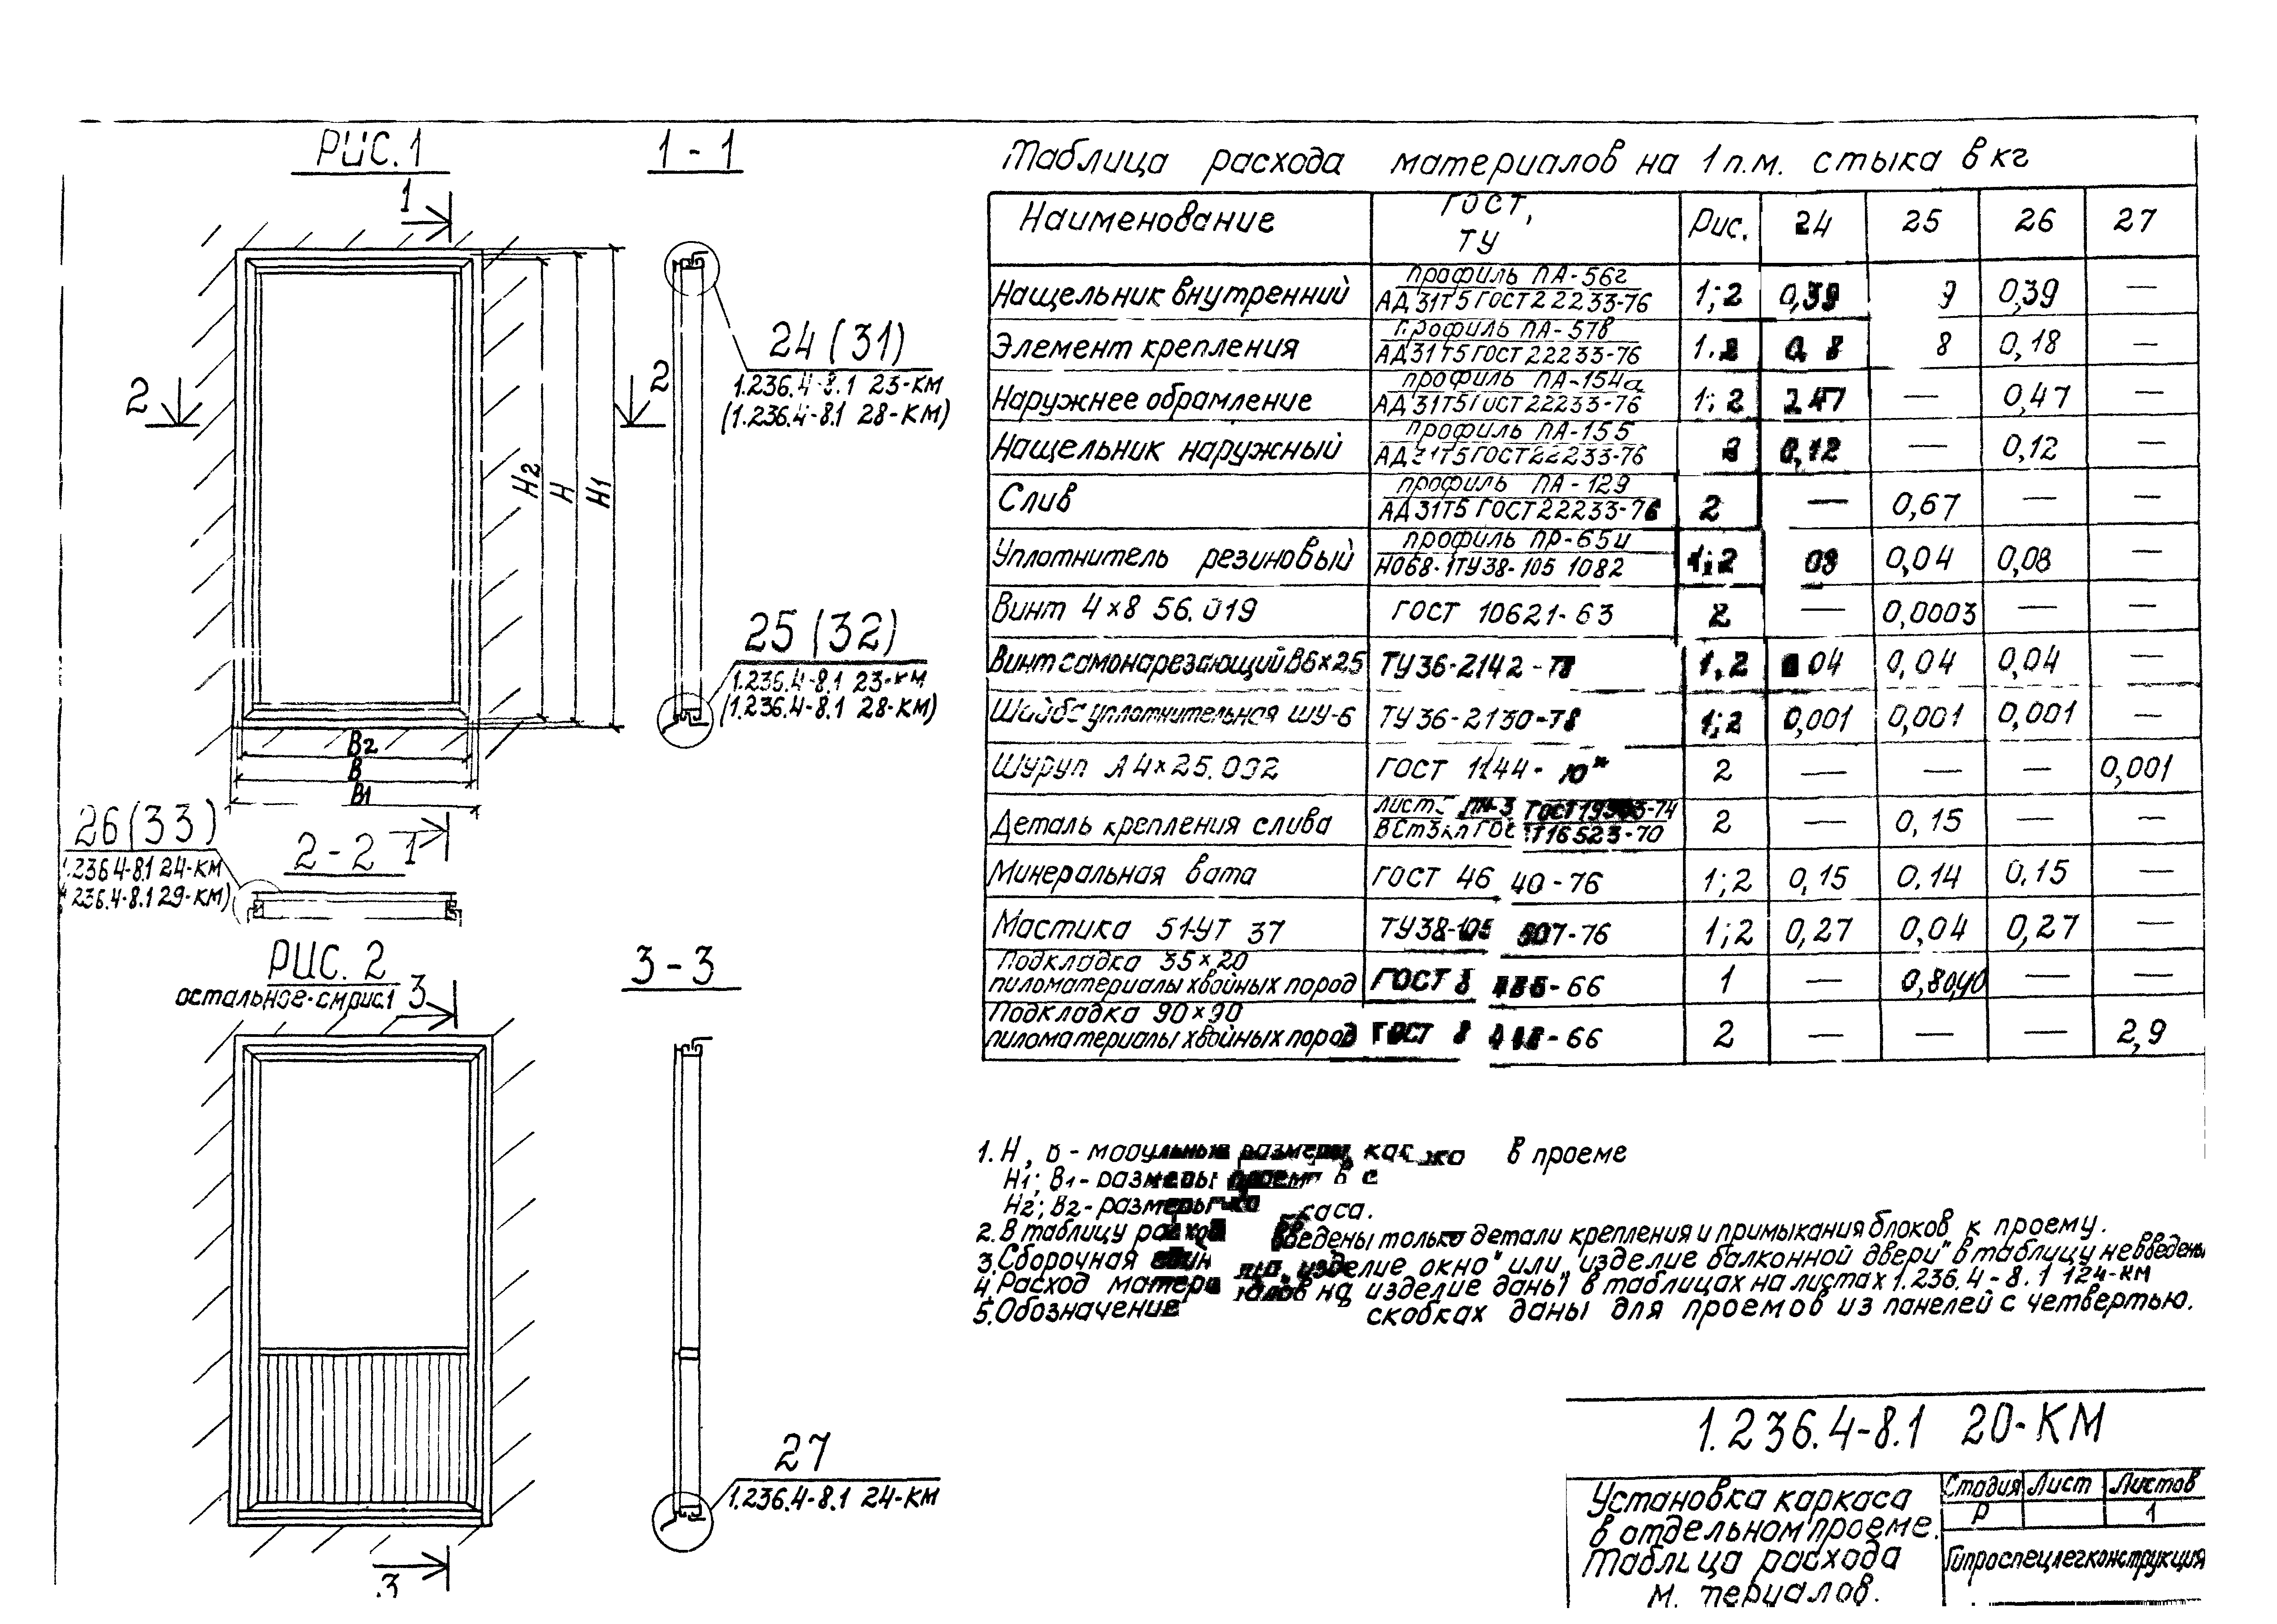 РИС. 1
1
1 - 1
2
2
H2
H
H1
B2
B
B1
24 (31)
1.236.4-8.1 23-КМ
(1.236.4-8.1 28-КМ)
25 (32)
1.236.4-8.1 23-КМ
(1.236.4-8.1 28-КМ)
26 (33)
1.236.4-8.1 24-КМ
236.4-8.1 29-КМ)
2-2
1
РИС. 2
остальное-см рис.1
3
3-3
27
1.236.4-8.1 24-КМ
3
Таблица расхода материалов на 1 п.м. стыка в кг
Наименование ГОСТ, ТУ Рис. 24 25 26 27
Нащельник внутренний профиль ПА-56г АД31Т5 ГОСТ 22233-76 1; 2 0,39 9 0,39 —
Элемент крепления профиль ПА-57в АД31Т5 ГОСТ 22233-76 1.2 0 8 8 0,18 —
Наружнее обрамление профиль ПА-154а АД31Т5 ГОСТ 22233-76 1; 2 47 — 0,47 —
Нащельник наружный профиль ПА-155 АД31Т5 ГОСТ 22233-76 0,12 — 0,12 —
Слив профиль ПА-129 АД31Т5 ГОСТ 22233-76 2 — 0,67 — —
Уплотнитель резиновый профиль ПР-65и НО68-1ТУ38-105 1082 1; 2 08 0,04 0,08 —
Винт 4×8 56.019 ГОСТ 10621-63 2 — 0,0003 — —
Винт самонарезающий В6×25 ТУ36-2142-78 1,2 04 0,04 0,04 —
Шайба уплотнительная ШУ-6 ТУ36-2130-78 1;2 0,001 0,001 0,001 —
Шуруп А4×25.032 ГОСТ 1144- 2 — — — 0,001
Деталь крепления слива лист ПН-3 ГОСТ19903-74 ВСт3кп ГОСТ16523-70 2 — 0,15 — —
Минеральная вата ГОСТ 46 40-76 1;2 0,15 0,14 0,15 —
Мастика 51-УТ 37 ТУ38-105 507-76 1;2 0,27 0,04 0,27 —
Подкладка 35×20 пиломатериалы хвойных пород ГОСТ 8 486-66 1 — — —
Подкладка 90×90 пиломатериалы хвойных пород ГОСТ 8 -66 2 — — — 2,9
1. H, B - модульные размеры в проеме
H1; B1 - размеры проема в с
H2; B2 - размеры каса.
2. В таблицу расход введены только детали крепления и примыкания блоков к проему.
3. Сборочная „изделие окно" или „изделие балконной двери" в таблицу не введены
4. Расход материалов на изделие даны в таблицах на листах 1.236.4-8.1 124-КМ
5. Обозначение скобках даны для проемов из панелей с четвертью.
1.236.4-8.1 20-КМ
Установка каркаса
в отдельном проеме.
Таблица расхода
м. териалов.
Стадия Лист Листов
Р 1
Гипроспецлегконструкция